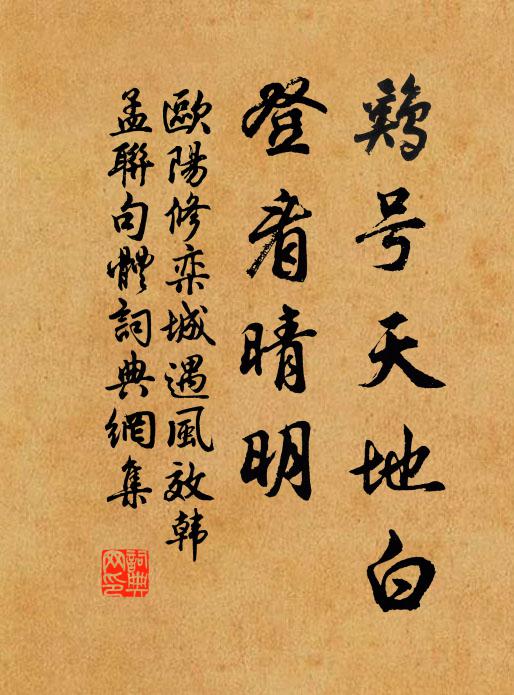 鷄号天地白
登看晴明
歐陽修栾城遇風效韩
孟聯句體詞典網集
詞典
网印